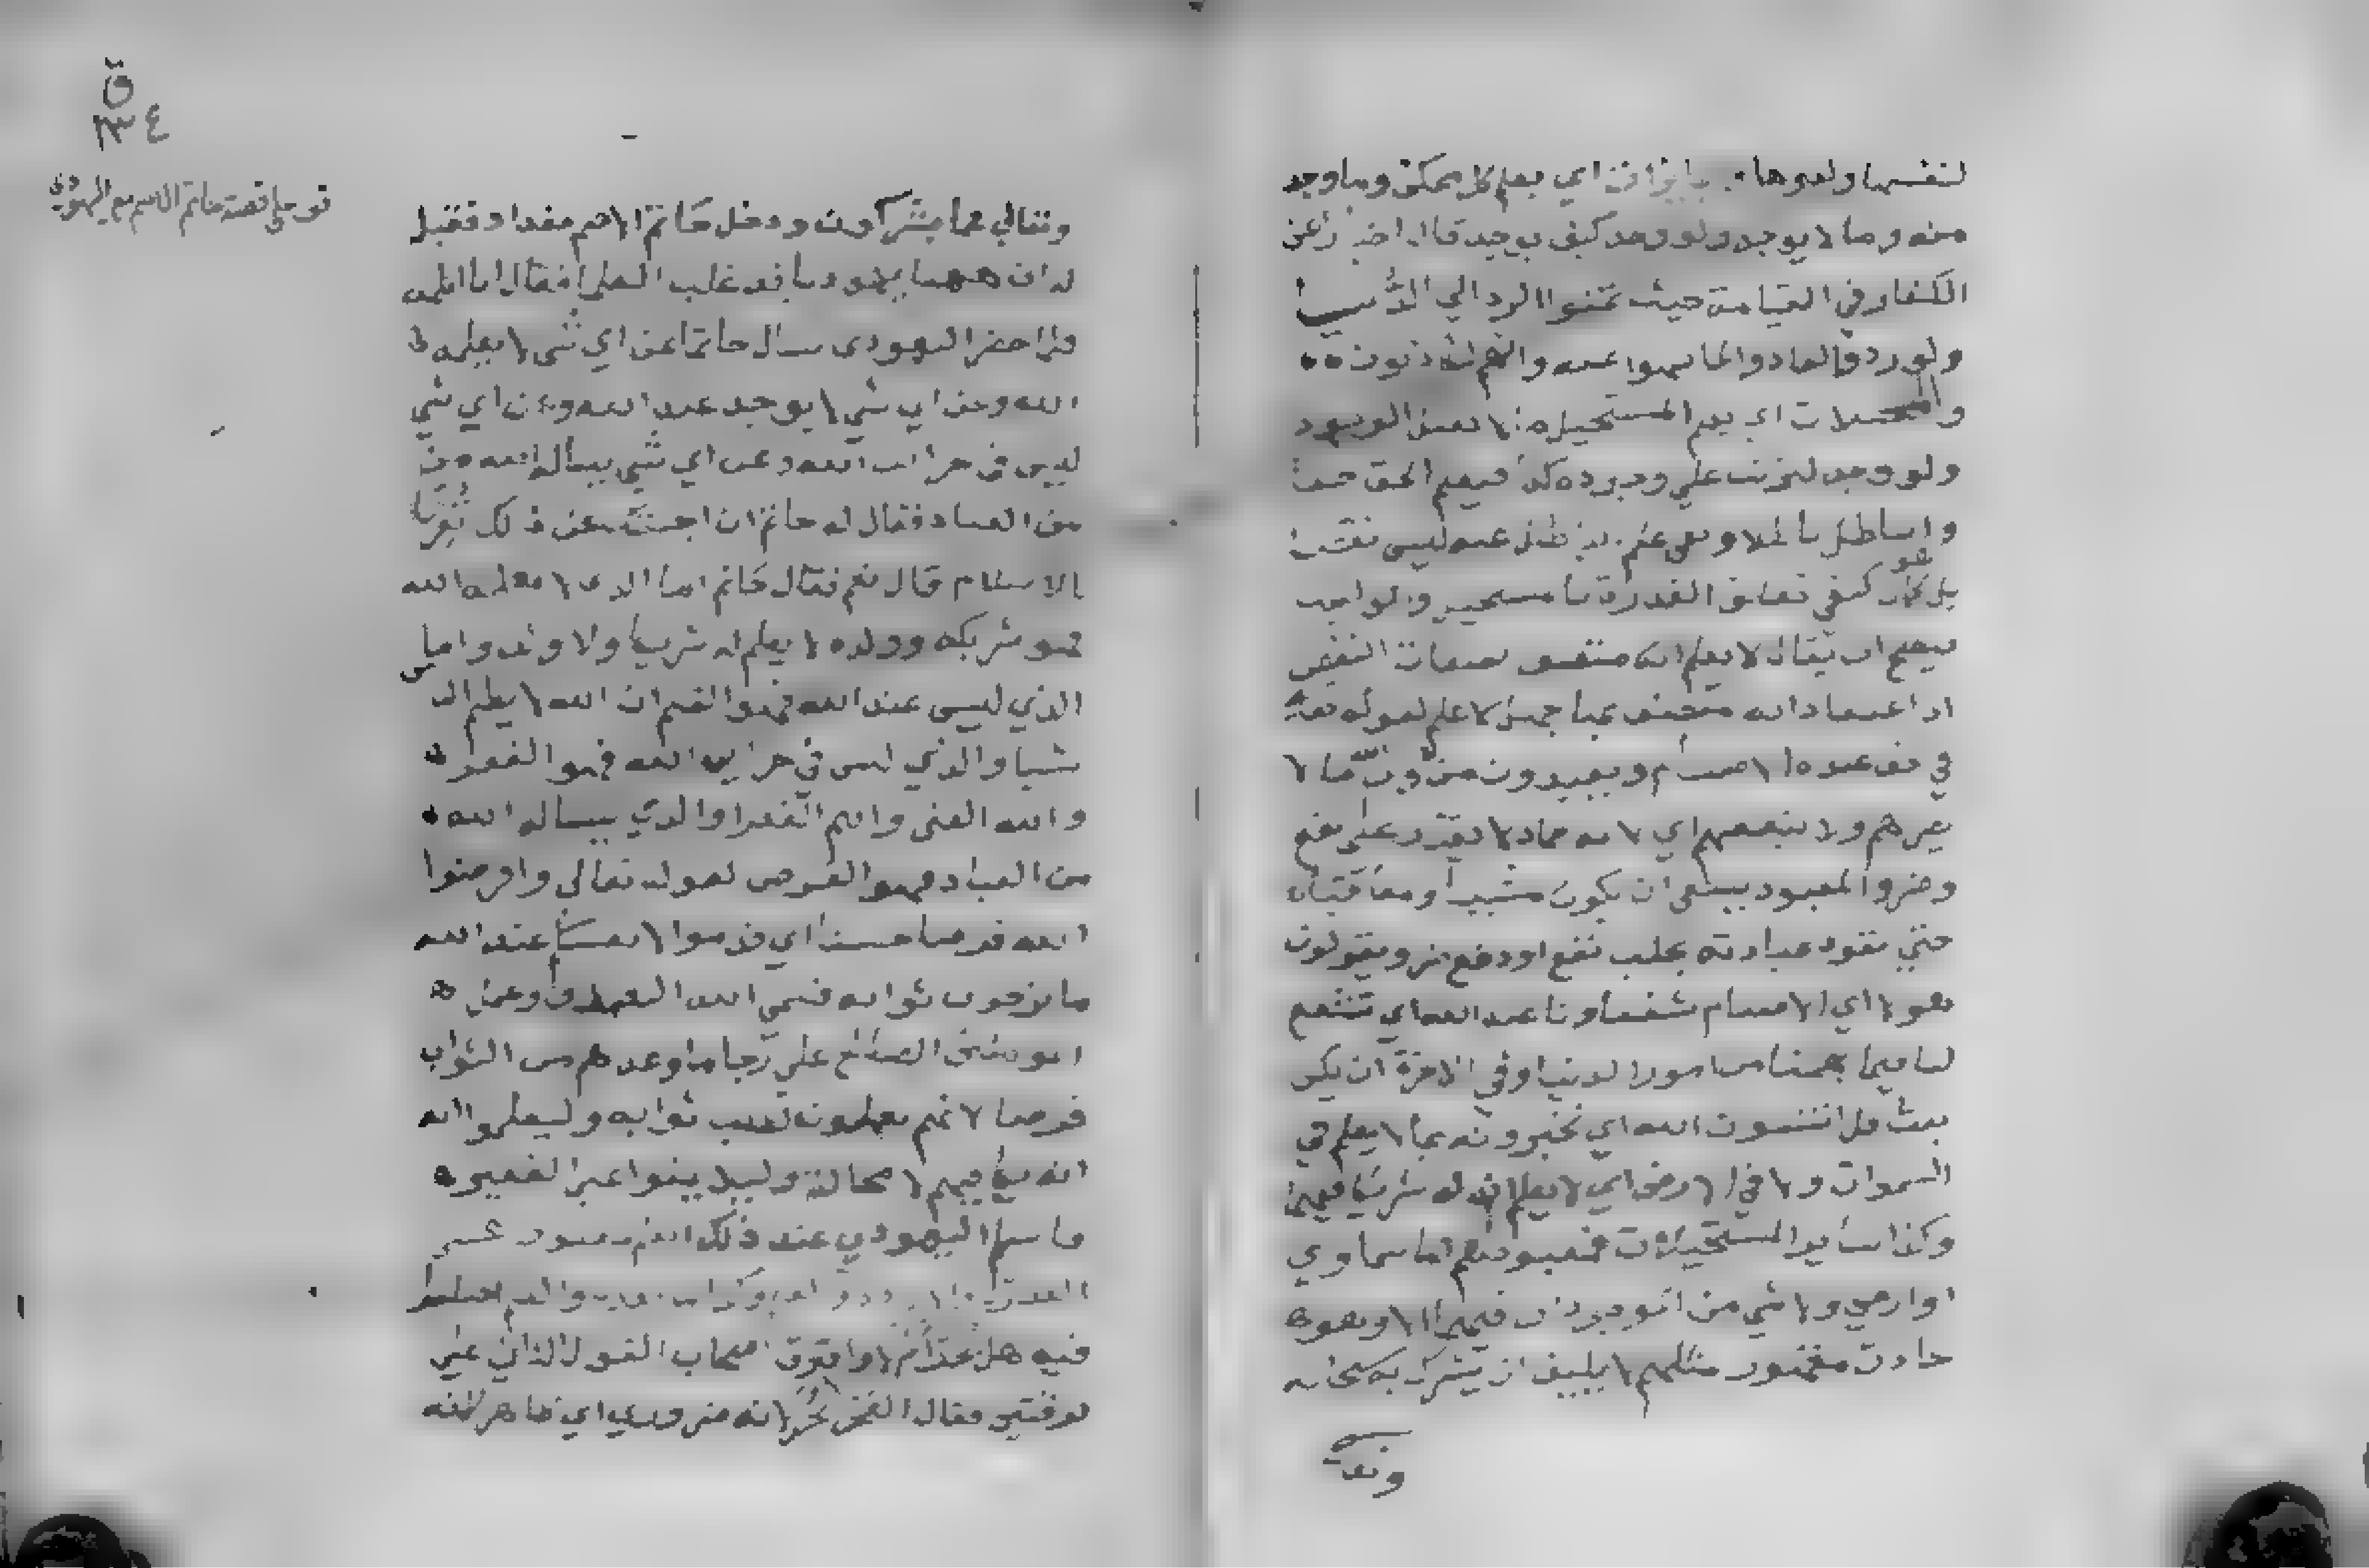 لنفسها ولغيرها اي يعلم كل ممكن وما وجد
منه وما لا يوجد ولو وجد كيف يوجد قال اخبارا عن
الكفار في القيامة حيث تمنوا الرد الي الدنيا
ولو ردوا لعادوا لما نهوا عنه وانهم لكاذبون
والمستحيلات اي يعلم المستحيل لا يقبل الوجود
ولو وجد لترتب علي وجوده كذا فيعلم الحق حقا
والباطل باطلا عنه ليس نقصا
بل هو كمال كيفي تعلق القدرة بالمستحيل والواجب
فيصح ان يقال لا يعلم انه متصف بصفات النقص
اذ اعتقاد انه متصف بها جهل لا علم لقوله تعالى
في حق عبدة الاصنام ويعبدون من دون الله ما لا
يضرهم ولا ينفعهم اي لانه جماد لا يقدر علي نفع
وضر والمعبود ينبغي ان يكون مثيبا ومعاقبا
حتي تعود عبادته بجلب نفع او دفع ضر ويقولون
هولا اي الاصنام شفعاونا عند الله اي تشفع
لنا فيما يهمنا من امور الدنيا وفي الاخرة ان يكن
بعث قل اتنبئون الله اي تخبرونه بما لا يعلم في
السموات ولا في الارض اي لا يعلم ان له شريكا فيهما
وكذا ساير المستحيلات فمعبودهم اما سماوي
او ارضي ولا شي من الموجودات فيهما الا وهو
حادث مقهور مثلهم لا يليق ان يشرك به سبحانه
وتعالى
ق
١٣٤
قف علي قصة حاتم الاصم مع اليهودي
وتعالي عما يشركون ودخل حاتم الاصم بغداد فقيل
له ان ههنا يهوديا قد غلب العلما فقال انا اكلمه
فلما حضر اليهودي سال حاتما عن اي شي لا يعلمه
الله وعن اي شي لا يوجد عند الله وعن اي شي
ليس في خزائن الله وعن اي شي يساله الله من
من العباد فقال له حاتم ان اجبتك عن ذلك تقر
بالاسلام قال نعم فقال حاتم اما الذي لا يعلمه الله
فهو شريكه وولده لا يعلم له شريكا ولا ولد واما
الذي ليس عند الله فهو الظلم ان الله لا يظلم الناس
شيا والذي ليس في خزاين الله فهو الفقر
والله الغني وانتم الفقرا والذي يساله الله
من العباد فهو القرض لقوله تعالى واقرضوا
الله قرضا حسنا اي قدموا لانفسكم عند الله
ما ترجون ثوابه فسمي الله الصدقة وعمل
المومنين الصالح علي رجا ما وعدهم من الثواب
قرضا لانهم يعملون لطلب ثوابه وليعلموا انه
انه يكافيهم لا محالة وليلا يمنوا علي الفقير
فاسلم اليهودي عند ذلك
فيه هل عذاب ام لا وافترق اصحاب القول الثاني علي
فرقتين فقال الفخر انه ضروري اي ظاهر لانه